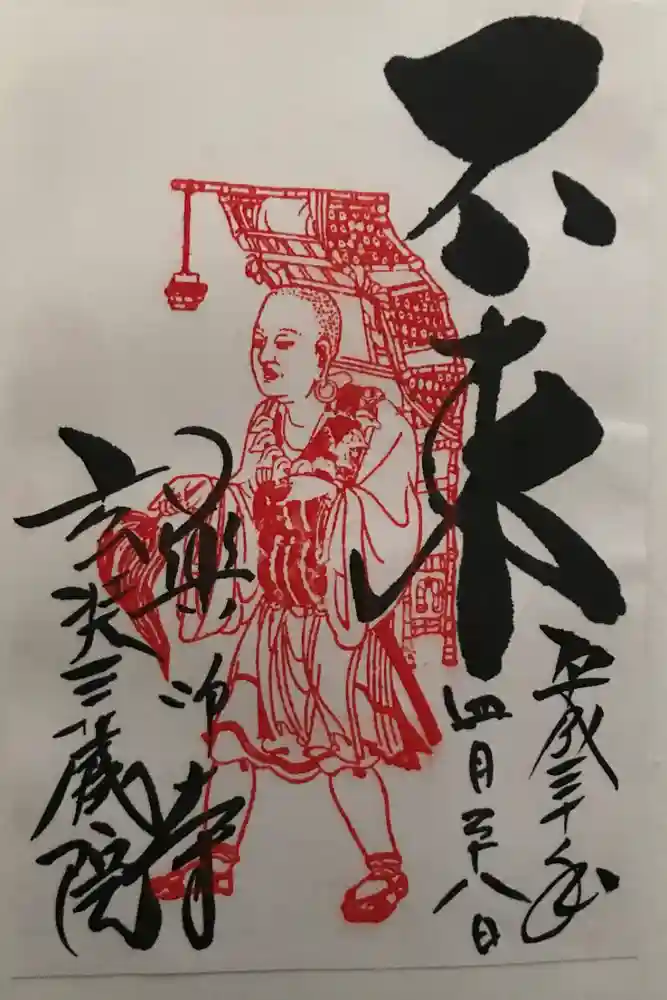 不東
平成三十年
四月二十八日
藥師寺
玄奘三蔵院